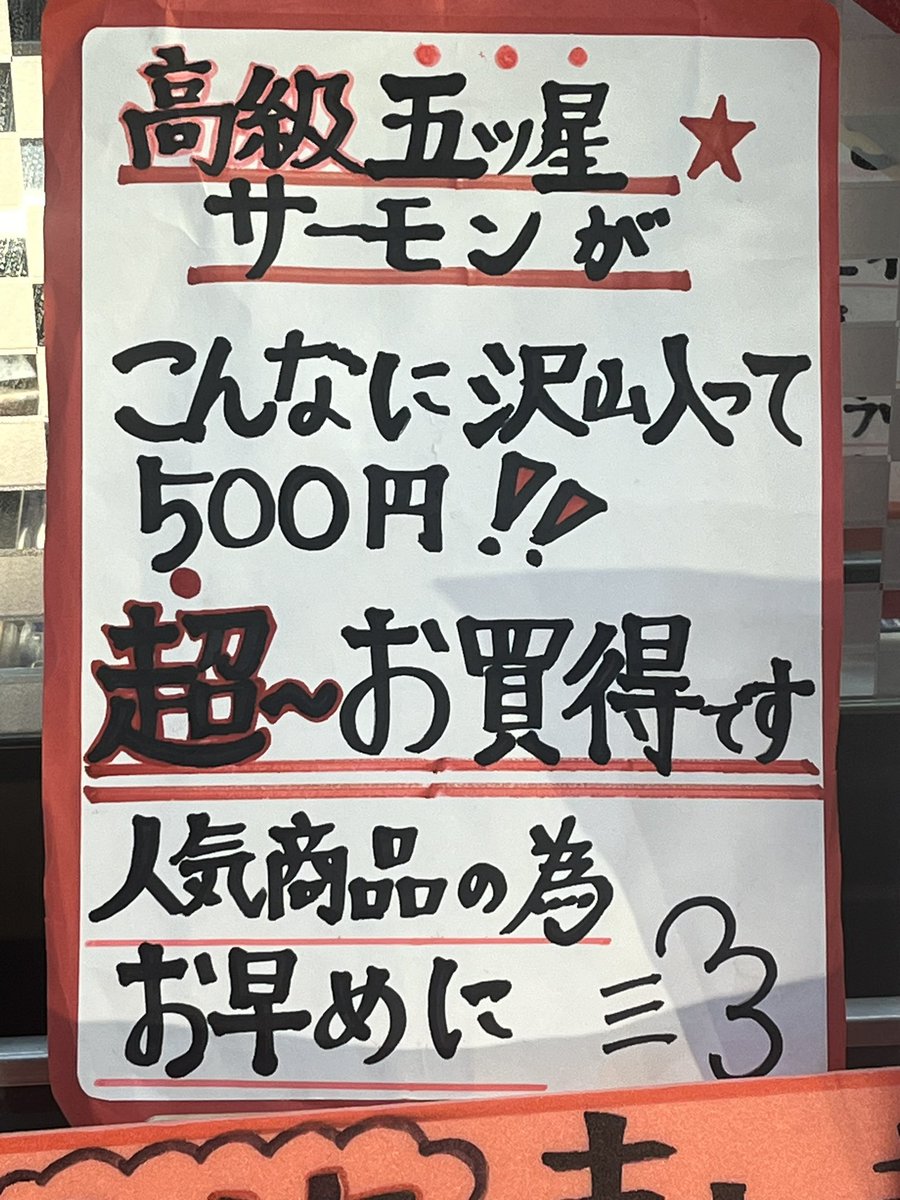 高級五ッ星★
サーモンが
こんなに沢山入って
500円!!
超〜お買得です
人気商品の為
お早めに